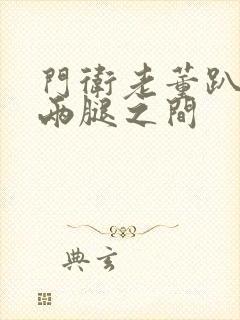 門衛老董趴
兩腿之間
典玄